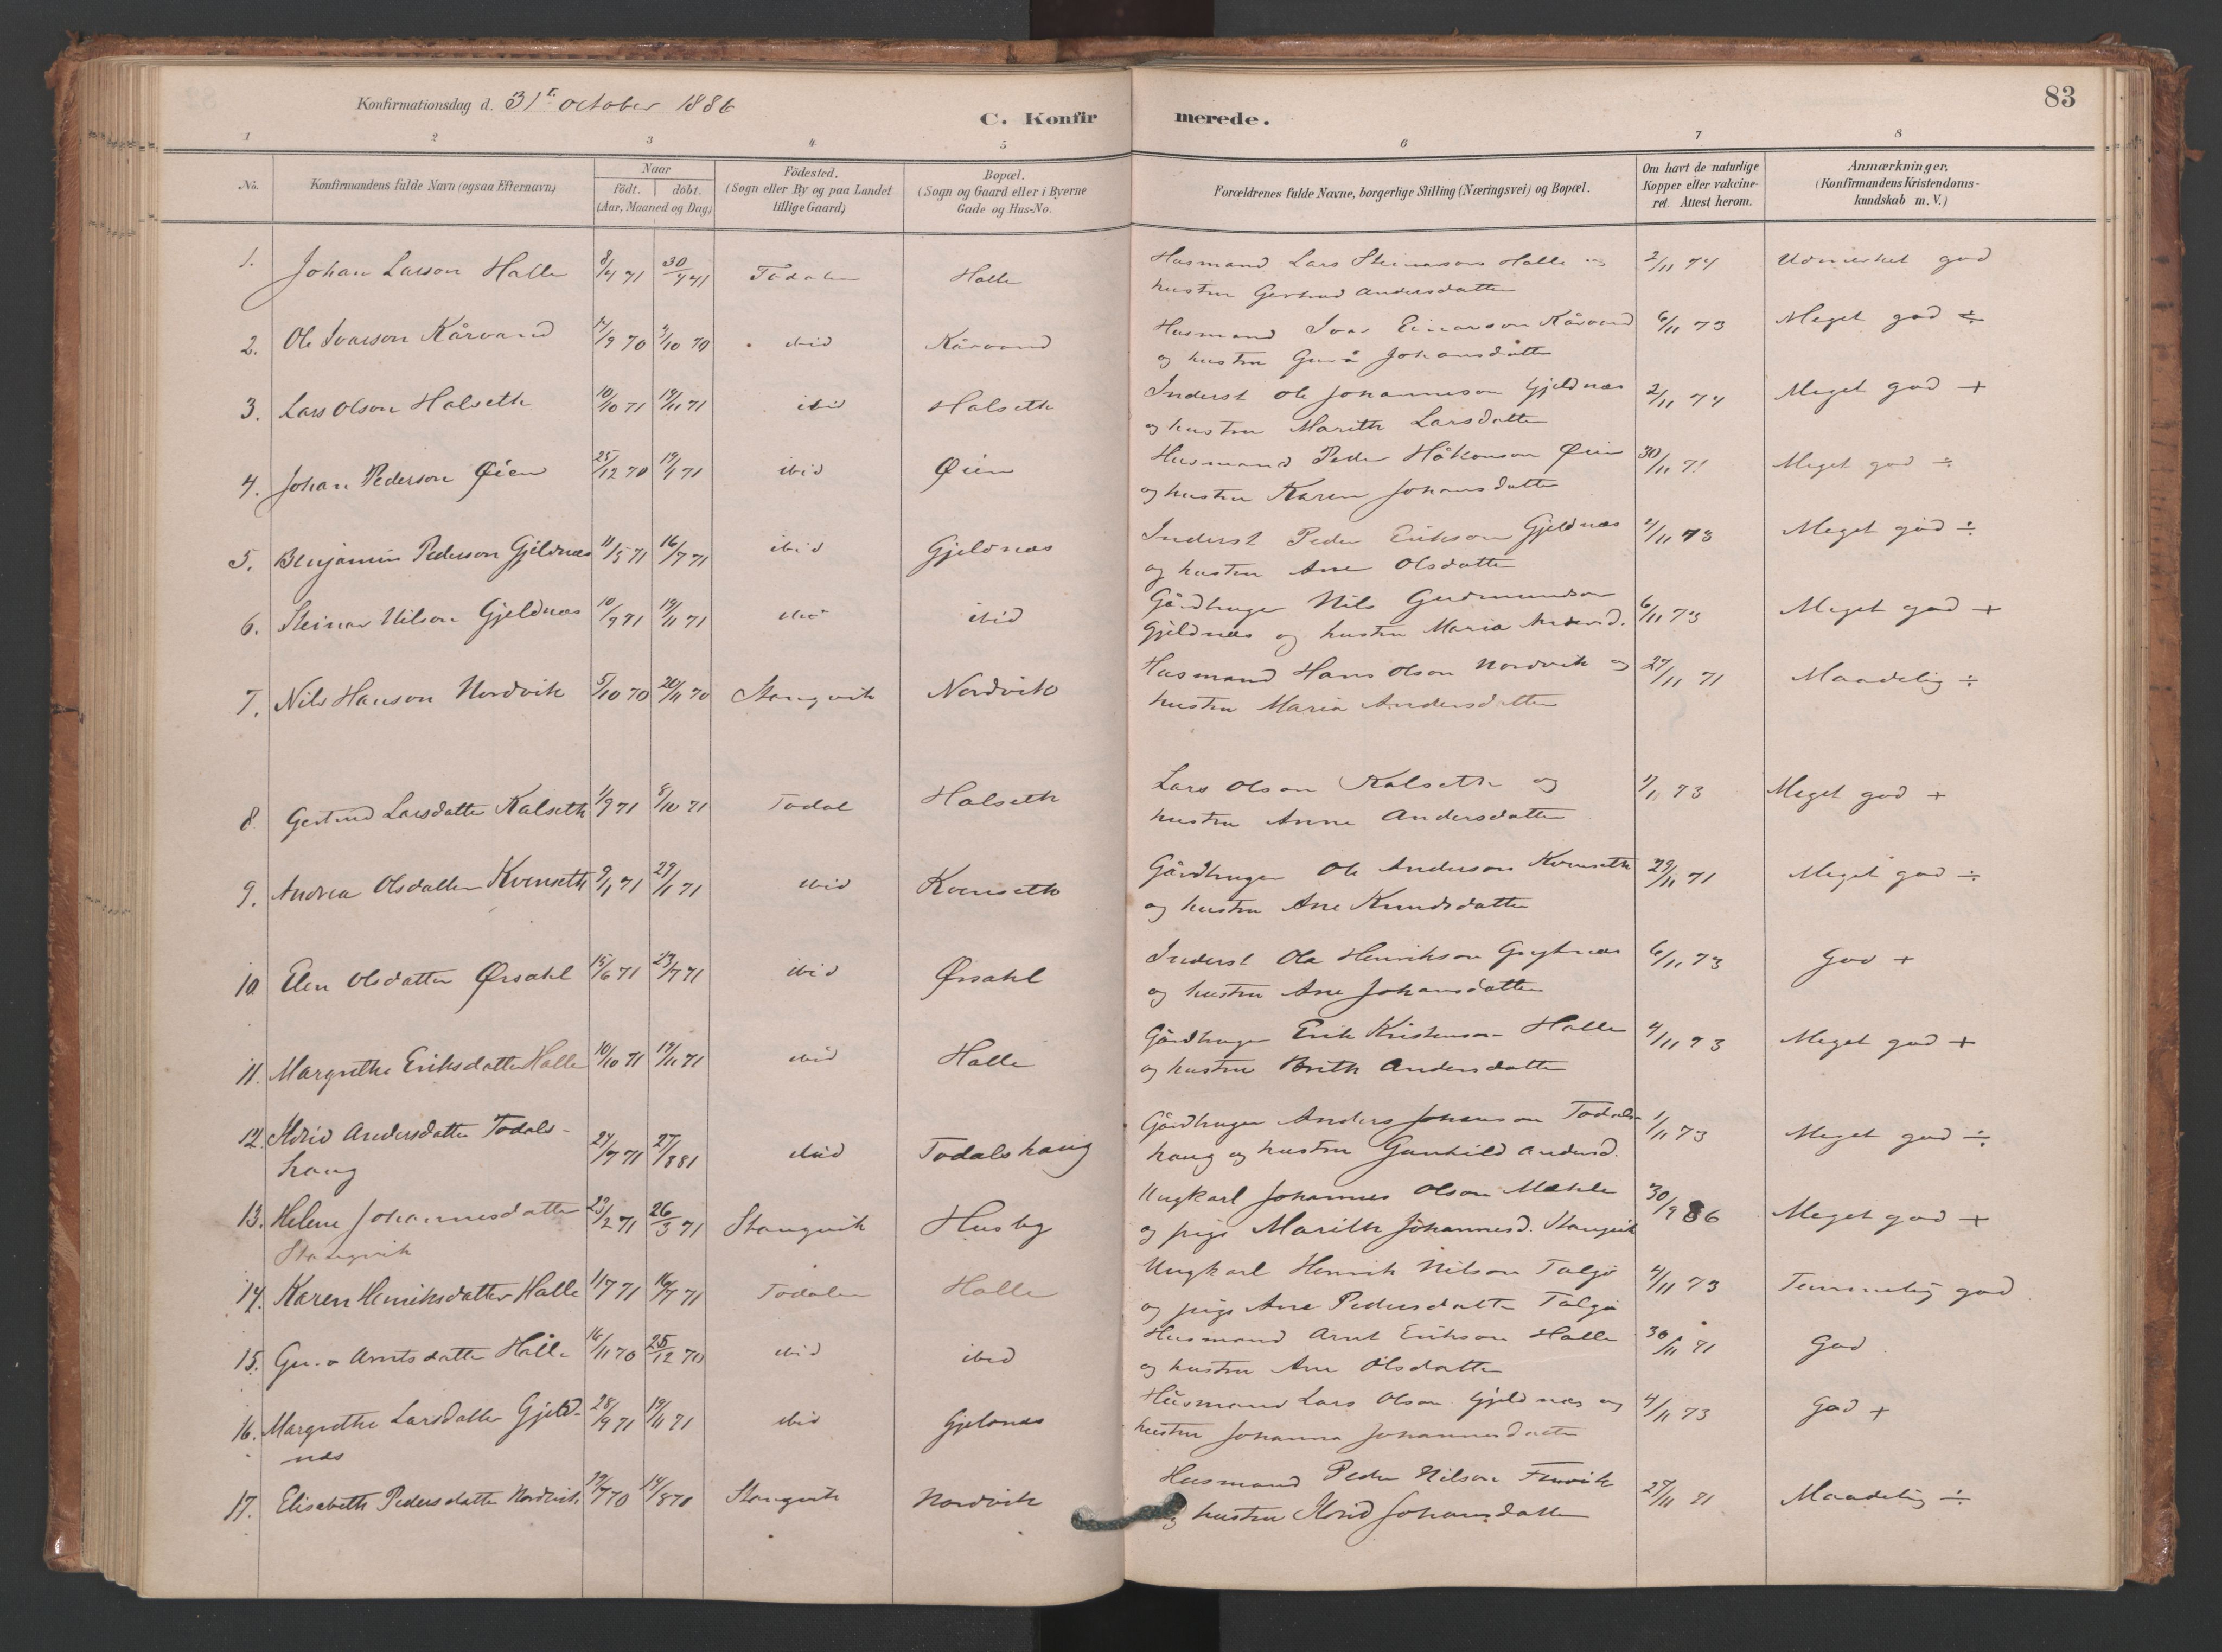 Konfirmationsdag d. 31t october 1886
C. Konfirmerede.
83
1 2 3 4 5 6 7 8
No. Konfirmandens fulde Navn (ogsaa Efternavn) Naar födt. döbt. (Aar, Maaned og Dag) Födested. (Sogn eller By og paa Landet tillige Gaard) Bopæl. (Sogn og Gaard eller i Byerne Gade og Hus-No. Forældrenes fulde Navne, borgerlige Stilling (Næringsvei) og Bopæl. Om havt de naturlige Kopper eller vakcineret. Attest herom. Anmærkninger, (Konfirmandens Kristendomskundskab m. V.)
1. Johan Larson Halle 8/4 71 30/4 71 Todalen Halle Husmand Lars Steinarson Halle og 2/11 74 Udmerket god
hustru Gertrud Andersdatter
2. Ole Ivarson Kårvand 14/9 70 9/10 70 ibid Kårvand Husmand Ivar Einarson Kårvand 6/11 73 Meget god ÷
og hustru Gurå Johansdatter
3. Lars Olson Halseth 10/10 71 19/11 71 ibid Halseth Inderst Ole Johanneson Gjeldnæs 2/11 74 Meget god +
og hustru Marith Larsdatter
4. Johan Pederson Øien 25/12 70 19/1 71 ibid Øien Husmand Peder Håkonson Øien 30/11 71 Meget god ÷
og hustru Karen Johansdatter
5. Benjamin Pederson Gjeldnæs 11/5 71 16/7 71 ibid Gjeldnæs Inderst Peder Erikson Gjeldnæs 4/11 73 Meget god ÷
og hustru Ane Olsdatter
6. Steinar Nilson Gjeldnæs 10/9 71 19/11 71 ibid ibid Gårdbruger Nils Gudmundson 6/11 73 Meget god +
Gjeldnæs og hustru Maria
7. Nils Hanson Nordvik 5/10 70 20/11 70 Stangvik Nordvik Husmand Hans Olson Nordvik og 27/11 71 Maadelig ÷
hustru Maria Andersdatter
8. Gertrud Larsdatter Kalseth 1/9 71 8/10 71 Todal Halseth Lars Olson Kalseth og 73 Meget god +
hustru Anne Andersdatter
9. Andrea Olsdatter Kvenseth 9/1 71 29/1 71 ibid Kvenseth Gårdbruger Ole Anderson Kvenseth 29/11 71 Meget god ÷
og hustru Ane Knudsdatter
10. Elen Olsdatter Ørsahl 15/6 71 23/7 71 ibid Ørsahl Inderst Ole Henrikson 6/11 73 God +
og hustru Ane Johansdatter
11. Margrethe Eriksdatter Halle 10/10 71 19/11 71 ibid Halle Gårdbruger Erik Kristenson Halle 4/11 73 Meget god +
og hustru Brith Andersdatter
12. Ildrid Andersdatter Todals- 27/7 71 27/8 81 ibid Todalshaug Gårdbruger Anders Johanson Todals- 1/11 73 Meget god ÷
haug haug og hustru Gunhild Andersd.
13. Helene Johannesdatter 23/2 71 26/3 71 Stangvik Husby Ungkarl Johannes Olson Mæhle 30/9 86 Meget god +
Stangvik og pige Marith Johannesd. Stangvik
14. Karen Henriksdatter Halle 11/7 71 16/7 71 Todalen Halle Ungkarl Henrik Nilson Talgø 4/11 73 Temmelig god
og pige Ane Pedersdatter Talgø
15. Arntsdatter Halle 16/11 70 25/12 70 ibid ibid Husmand Arnt Erikson Halle 30/11 71 God
og hustru Ane Olsdatter
16. Margrethe Larsdatter Gjeld- 28/9 71 19/11 71 ibid Gjeldnæs Husmand Lars Olson Gjeldnæs og 4/11 73 God +
næs hustru Johanna Johannesdatter
17. Elisabeth Pedersdatter Nordvik 19/7 70 14/8 70 Stangvik Nordvik Husmand Peder Nilson 27/11 71 Maadelig ÷
og hustru Ildrid Johansdatter